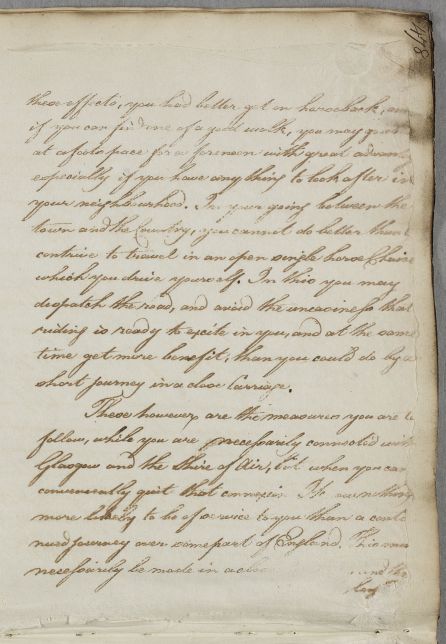 these effects, you had better get on horseback, and
if you can find one of a good walk, you may go out
at a foots pace for a forenoon with great advant
especially if you have anything to look after in
your neighbourhood. In your going between the
town and the Country, you cannot do better than
contrive to travel in an open single horse Chaise
which you drive yourself. In this you may
dispatch the road, and avoid the uneasiness that
riding is ready to excite in you, and at the same
time get more benefit, than you could do by a
short Journey in a close Carriage.
These however are the measures you are to
follow, while you are necessarily connected with
Glasgow and the Shire of Air, but when you can
conveniently quit that connexion nothing
more likely to be of service to you than a conti
nued Journey over some part of England. This must
necessarily be made in a close and the